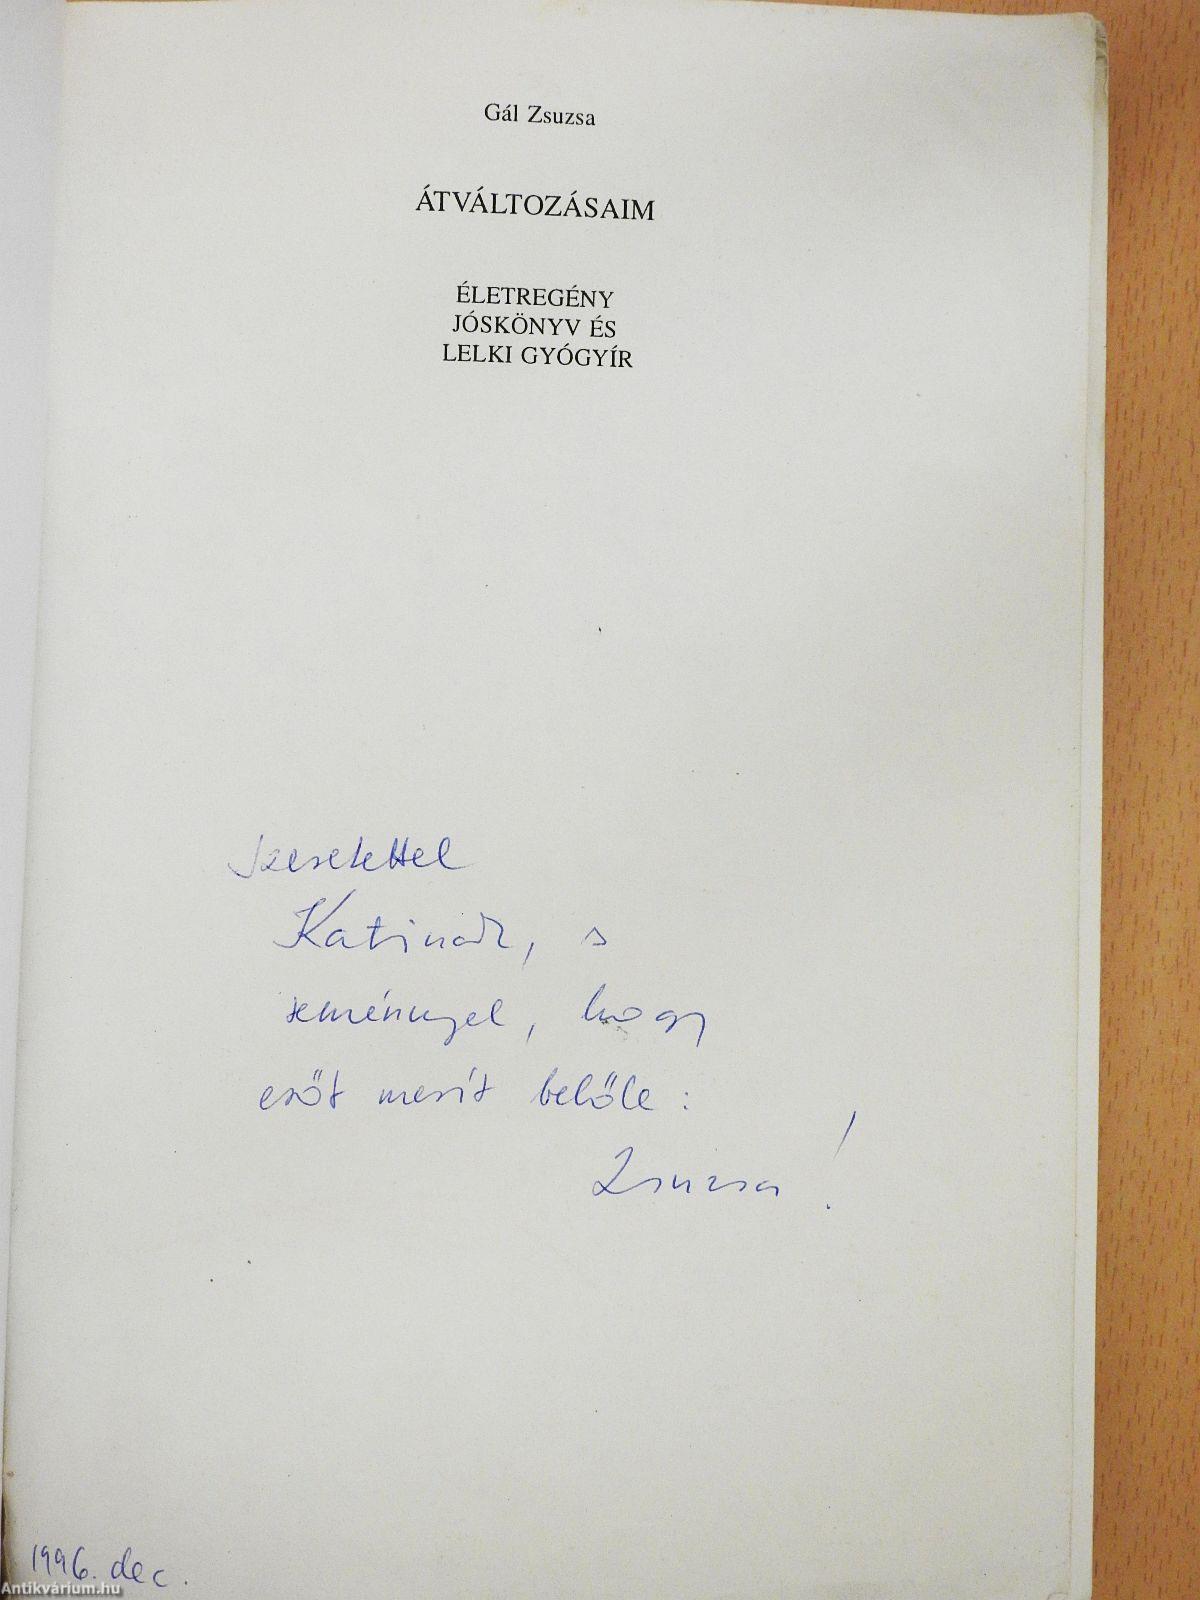 Gál Zsuzsa
ÁTVÁLTOZÁSAIM
ÉLETREGÉNY
JÓSKÖNYV ÉS
LELKI GYÓGYÍR
Szeretettel
Katinak, s
reménnyel, hogy
erőt merít belőle:
Zsuzsa!
1996. dec.
Antikvárium.hu